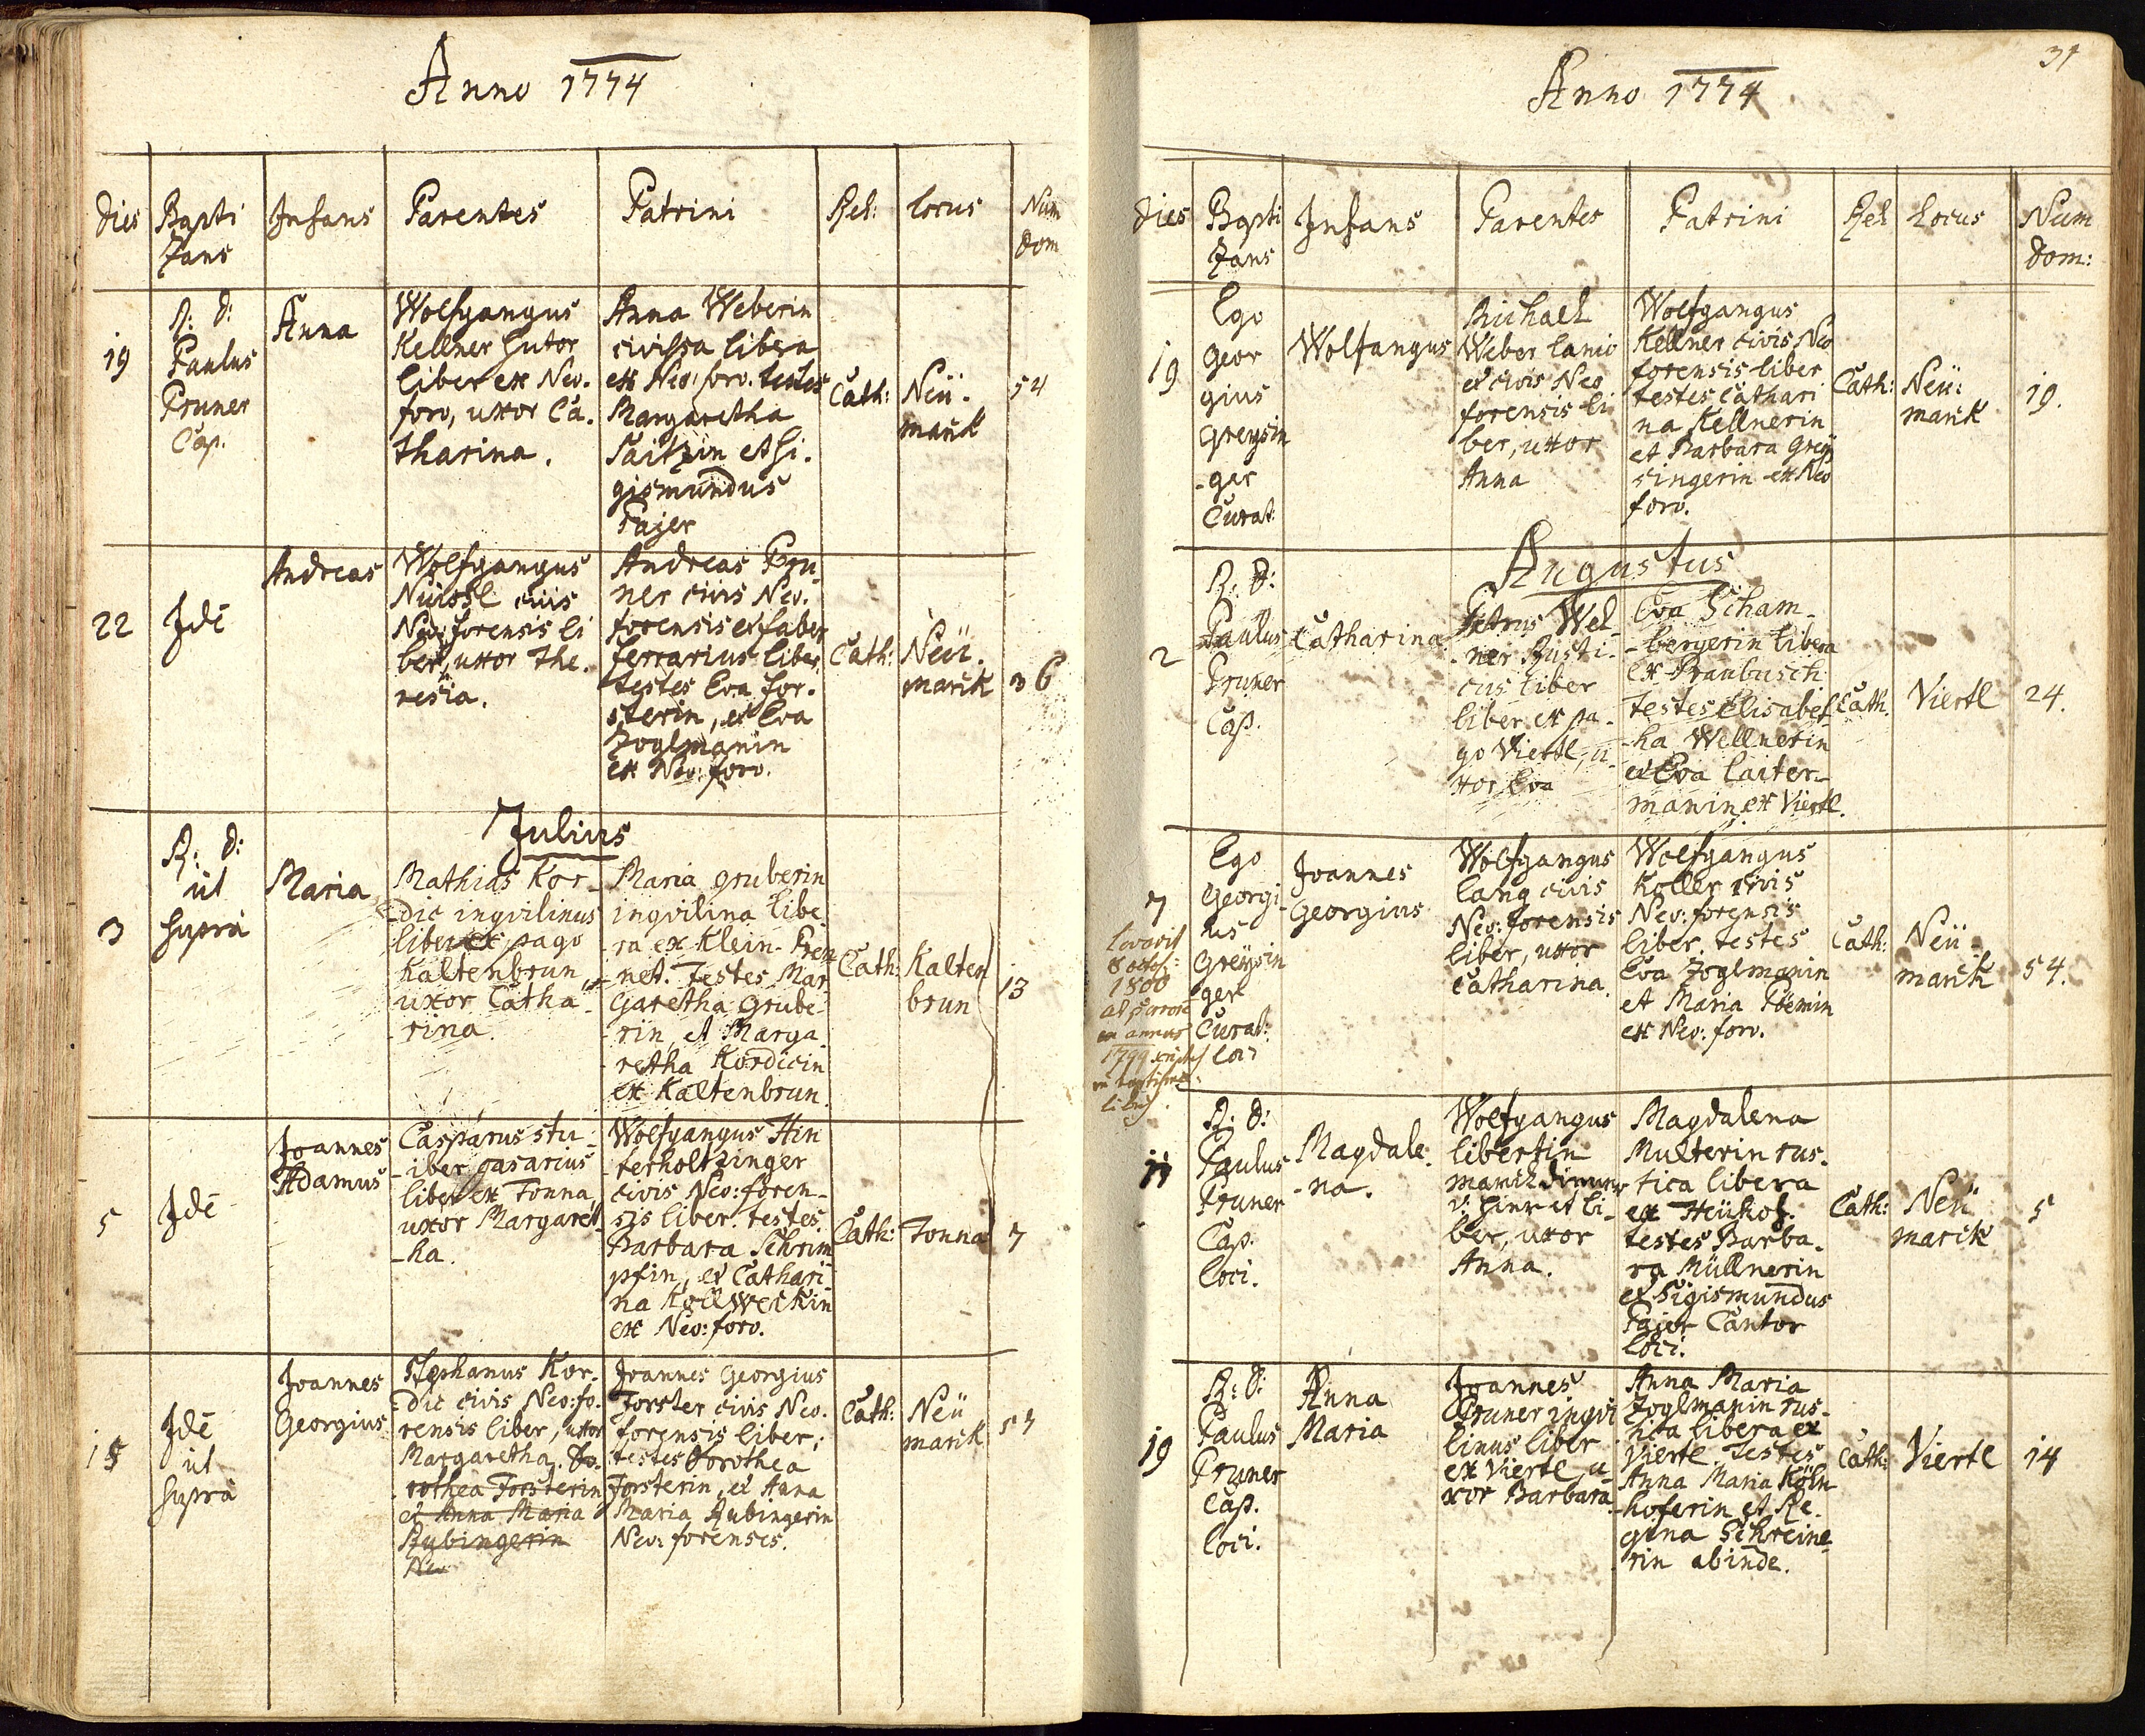 Anno 1774
Dies Bapti Infans Parentes Patrini Rel: Locus Num
zans dom
19
R: D:
Paulus
Pruner
Cap.
Anna
Wolfgangus
Kellner sutor
liber ex Neo.
foro, uxor Ca.
tharina.
Anna Weberin
civissa libera
ex Neo: foro. testes
Margaretha
Saitzin et Si.
gismundus
Pajer
Cath:
Neü.
marck
54
22
Idē
Andreas
Wolfgangus
civis
Neo: forensis li
ber, uxor The.
resia.
Andreas Pru
ner civis Neo.
forensis et faber
ferrarius liber,
testes Eva for.
sterin, et Eva
Zoglmanin
ex Neo: foro.
Cath:
Neü.
marck
36
Julius
3
R: D:
ut
supra
Maria
Mathias Kor-
dic inqvilinus
liber ex pago
Kaltenbrun
uxor Catha
-rina.
Maria gruberin
inqvilina libe
ra ex Klein- Pren
net. Testes Mar
garetha grube
rin, et Marga
retha Kordicin
ex Kaltenbrun.
Cath:
Kalten
brun
13
5
Idē
Joannes
Adamus
Casparus stu
iber gasarius
liber ex Tonna,
uxor Margaret
-ha.
Wolfgangus Hin
terholtzinger
civis Neo: foren-
sis liber. testes.
Barbara Schrim
pfin, et Cathari
na Kollweckin
ex Neo: foro.
Cath:
Tonna
7
15
Idē
ut
supra
Joannes
Georgius
Stephanus Kor.
dic civis Neo: fo.
rensis liber, uxor
Margaretha. Do.
rothea Forsterin
et Anna Maria
Rubingerin
Neo
Joannes Georgius
Forster civis Neo.
forensis liber;
testes Dorothea
Forsterin, et Anna
Maria Rubingerin
Neo: forenses.
Cath:
Neü
marck
57
31
Anno 1774
Dies Bapti Infans Parentes Patrini Rel Locus Num
zans dom:
19
Ego
Geor
gius
Greysin
-ger
Curat:
Wolfangus
Michael
Weber lanio
et civis Neo
forensis li
ber, uxor
Anna
Wolfgangus
Kellner civis Neo
forensis liber
testes Cathari
na Kellnerin
et Barbara Greÿ
singerin ex Neo
foro.
Cath:
Neü:
marck
19.
Augustus
2
R: D:
Paulus
Pruner
Cap.
Catharina
Petrus Wel
ner Rusti-
cus liber
liber ex pa-
go Viertl, u
xor Eva
Eva Scham-
-bergerin libera
ex Praubusch
testes Elisabet
-ha Wellnerin
et Eva Laiter-
manin ex Viertl.
Cath.
Viertl
24.
7
8 octob:
1800
1799
Ego
Georgi-
us
Greÿsin
ger
Curat:
loci
Joannes
Georgius
Wolfgangus
Lang civis
Neo: forensis
liber, uxor
Catharina.
Wolfgangus
Koller civis
Neo: forensis
liber. testes
Eva Zoglmanin
et Maria
ex Neo: foro.
Cath:
Neü-
marck
54.
11
R: D:
Paulus
Pruner
Cap.
loci.
Magdale.
-na.
Wolfgangus
libertin
et li-
ber, uxor
Anna.
Magdalena
Multerin rus.
tica libera
ex Heühof.
testes Barba.
ra Müllnerin
et Sigismundus
Pajer Cantor
loci.
Cath:
Neü
marck
5
19
R: D:
Paulus
Pruner
Cap.
loci.
Anna
Maria
Joannes
Pruner inqvi
linus liber
ex Viertl, u
xor Barbara
Anna Maria
Zoglmanin rus-
tica libera ex
Viertl. Testes
Anna Maria Köln
hoferin et Re.
gina Schreine
rin abinde.
Cath:
Viertl
14